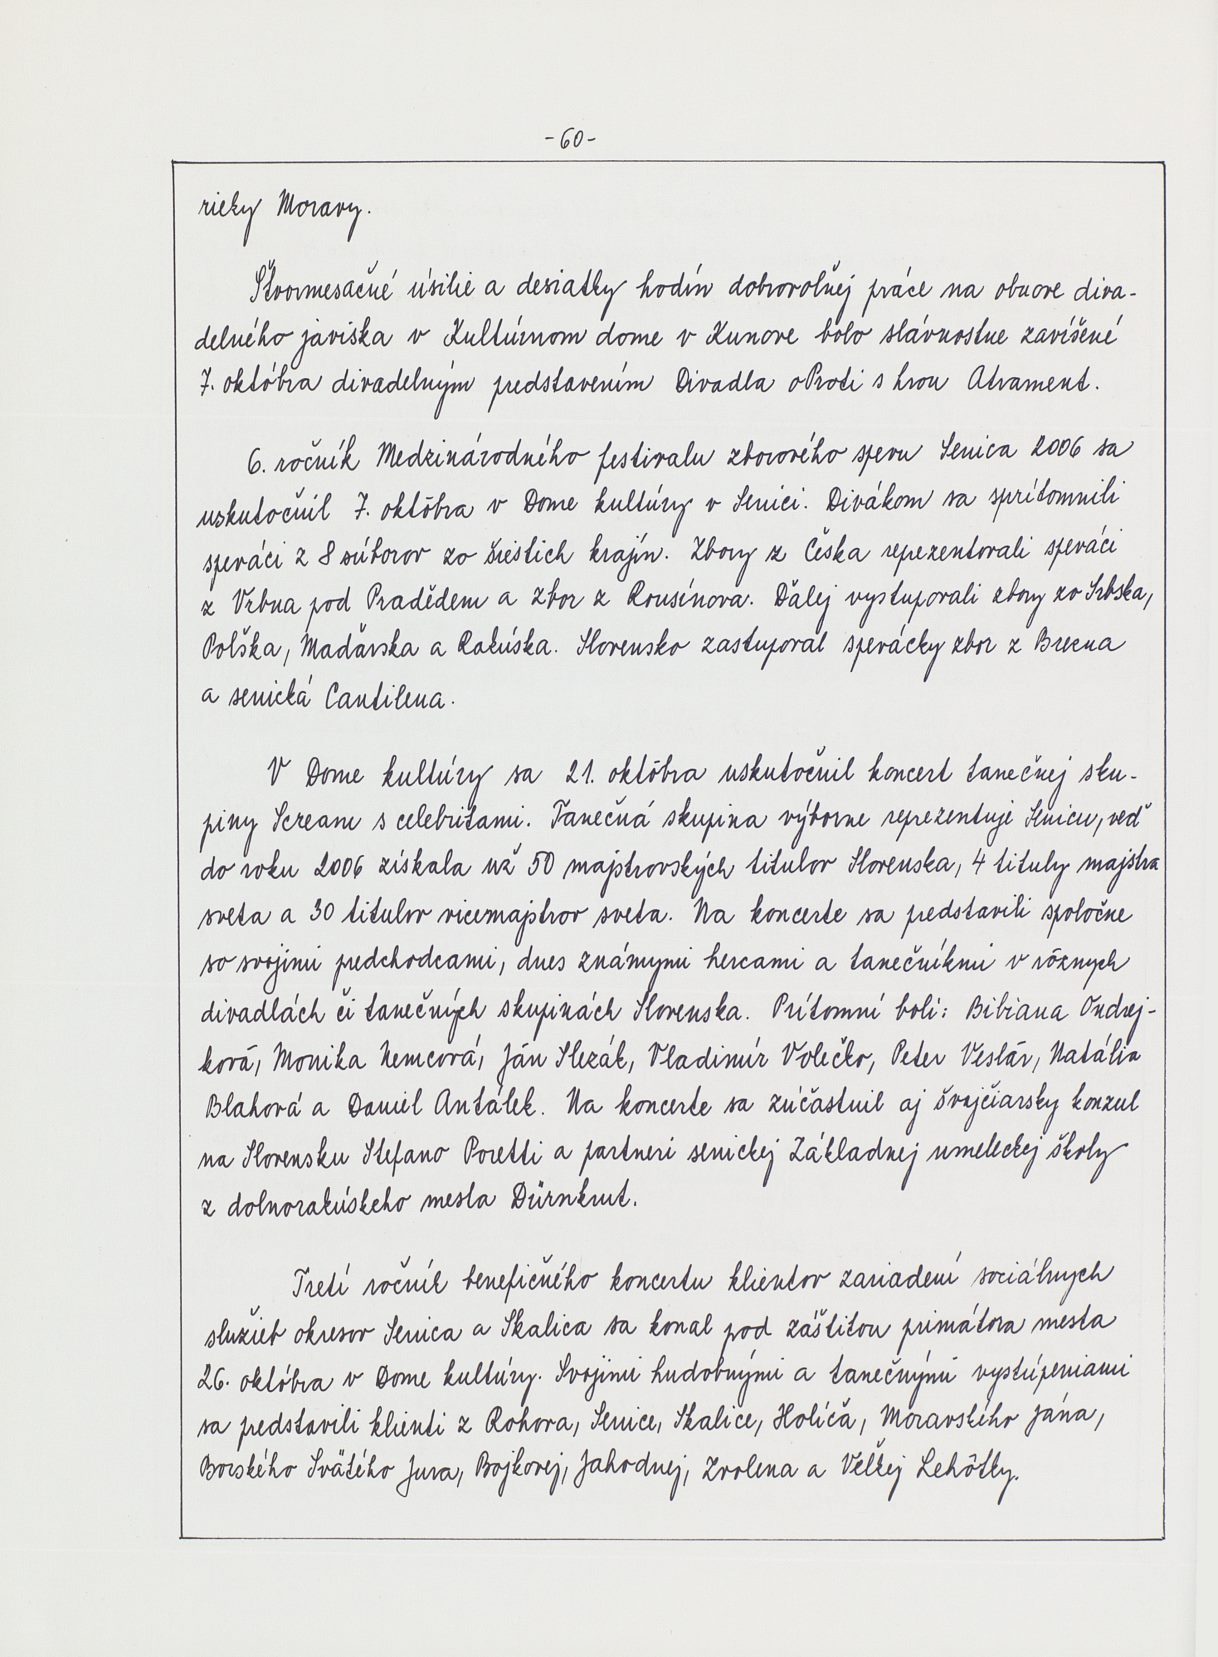 -60-
rieky Moravy.
Štvormesačné úsilie a desiatky hodín dobrovoľnej práce na obnove diva-
delného javiska v Kultúrnom dome v Kunove bolo slávnostne zavŕšené
7. októbra divadelným predstavením Divadla oProti s hrou Atrament.
6. ročník Medzinárodného festivalu zborového spevu Senica 2006 sa
uskutočnil 7. októbra v Dome kultúry v Senici. Divákom sa sprítomnili
speváci z 8 súborov zo šiestich krajín. Zbory z Česka reprezentovali speváci
z Vrbna pod Pradědem a zbor z Rousínova. Ďalej vystupovali zbory zo Srbska,
Poľska, Maďarska a Rakúska. Slovensko zastupoval spevácky zbor z Brezna
a senická Cantilena.
V Dome kultúry sa 21. októbra uskutočnil koncert tanečnej sku-
piny Scream s celebritami. Tanečná skupina výborne reprezentuje Senicu, veď
do roku 2006 získala už 50 majstrovských titulov Slovenska, 4 tituly majstra
sveta a 30 titulov vicemajstrov sveta. Na koncerte sa predstavili spoločne
so svojimi predchodcami, dnes známymi hercami a tanečníkmi v rôznych
divadlách či tanečných skupinách Slovenska. Prítomní boli: Bibiana Ondrej-
ková, Monika Nemcová, Ján Slezák, Vladimír Volečko, Peter Veslár, Natália
Blahová a Daniel Antálek. Na koncerte sa zúčastnil aj švajčiarsky konzul
na Slovensku Stefano Poretti a partneri senickej Základnej umeleckej školy
z dolnorakúskeho mesta Dürnkrut.
Tretí ročník benefičného koncertu klientov zariadení sociálnych
služieb okresov Senica a Skalica sa konal pod záštitou primátora mesta
26. októbra v Dome kultúry. Svojimi hudobnými a tanečnými vystúpeniami
sa predstavili klienti z Rohova, Senice, Skalice, Holíča, Moravského Jána,
Borského Svätého Jura, Bojkovej, Jahodnej, Zvolena a Veľkej Lehôtky.